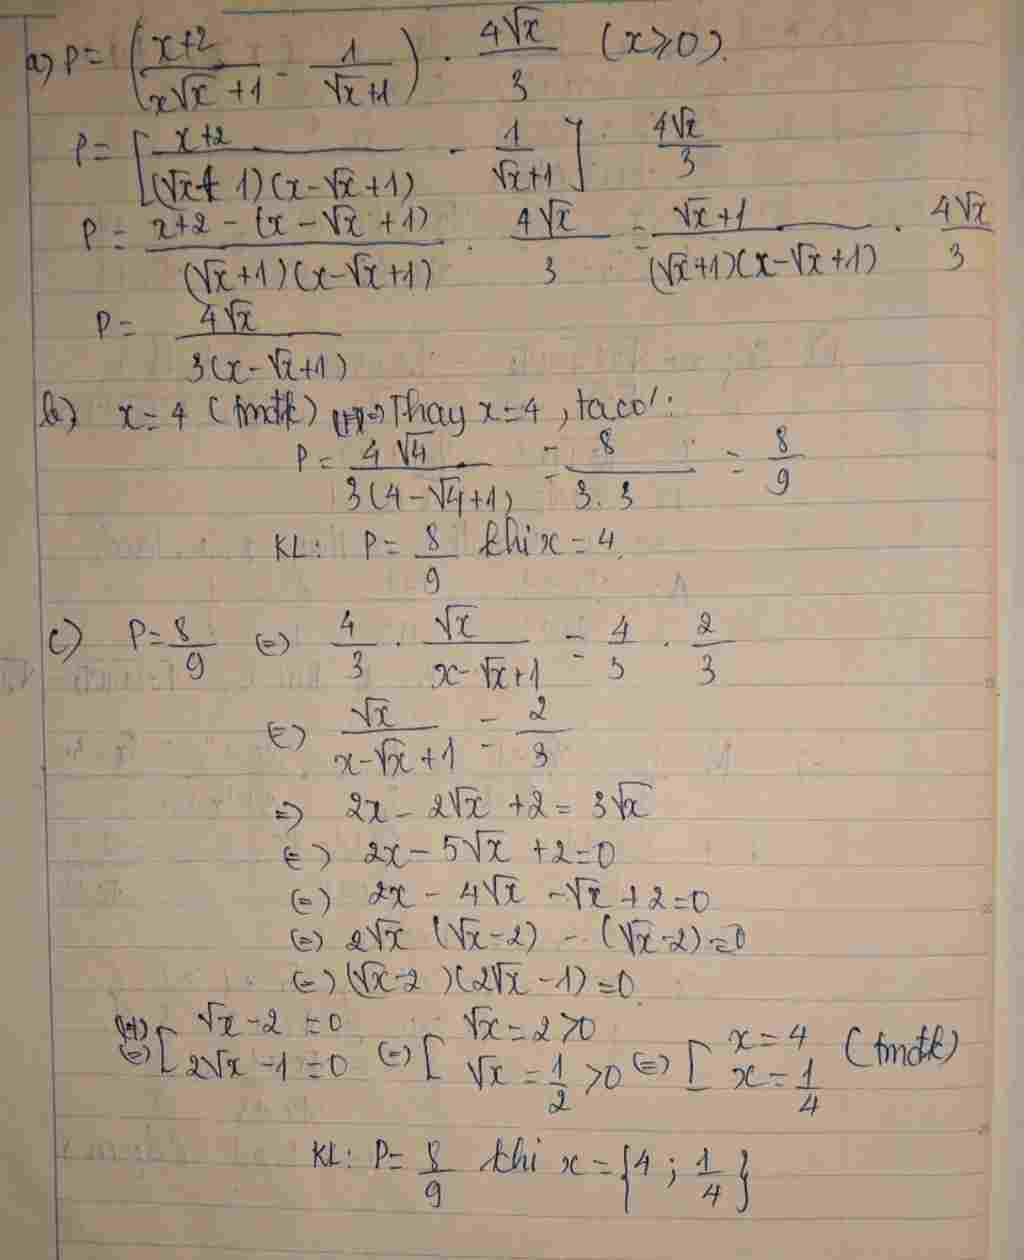 a) P = ( (x+2)/(x√x +1) - 1/(√x+1) ) . 4√x/3 (x≥0).
P = [ (x+2)/((√x + 1)(x-√x+1)) - 1/(√x+1) ] . 4√x/3
P = (x+2-(x-√x+1))/((√x+1)(x-√x+1)) . 4√x/3 = (√x+1)/((√x+1)(x-√x+1)) . 4√x/3
P = 4√x/(3(x-√x+1))
b) x=4 (tmđk) => Thay x=4, ta có:
P = 4√4/(3(4-√4+1)) = 8/(3.3) = 8/9
KL: P = 8/9 khi x = 4.
c) P = 8/9 (=) 4/3 . √x/(x-√x+1) = 4/3 . 2/3
(=) √x/(x-√x+1) = 2/3
=> 2x - 2√x + 2 = 3√x
(=) 2x - 5√x + 2 = 0
(=) 2x - 4√x - √x + 2 = 0
(=) 2√x (√x-2) - (√x-2) = 0
(=) (√x-2)(2√x-1) = 0
(=) [ √x-2=0 ; 2√x-1=0 (=) [ √x=2>0 ; √x=1/2>0 (=) [ x=4 ; x=1/4 (tmđk)
KL: P = 8/9 khi x = {4; 1/4}